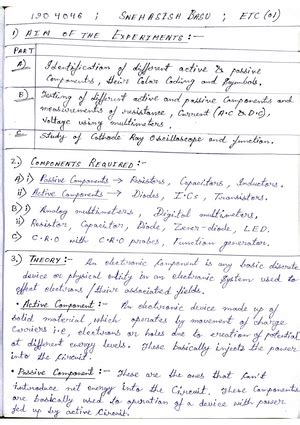 1904046 ; SNEHASISH BASU ; ETC (01)
1) AIM OF THE EXPERIMENTS :-
PART
A) Identification of different active & passive
Components, their Color Coding and Symbols.
B) Testing of different active and passive Components and
measurements of resistance, Current (A.C & D.C),
Voltage using multimeters.
C Study of Cathode Ray Oscilloscope and function.
2.) COMPONENTS REQUIRED :-
A) i) Passive Components → Resistors, Capacitors, Inductors.
ii) Active Components → Diodes, I.Cs, Transistors.
B) i) Analog multimeters, Digital multimeters,
ii) Resistor, Capacitor, Diode, Zener-diode, LED.
C) C.R.O with C.R.O probes, Function generator.
3.) THEORY :- An electronic Component is any basic discrete
device or physical entity in an electronic System used to
effect electrons / their associated fields.
• Active Component :- An electronic device made up of
solid material which operates by movement of charge
Carriers i.e, electrons or holes due to creation of potential
at different energy levels. These basically injects the power
into the Circuit.
• Passive Component :- These are the ones that can't
introduce net energy into the Circuit. These Components
are basically used to operation of a device with power
fed up by active Circuit.